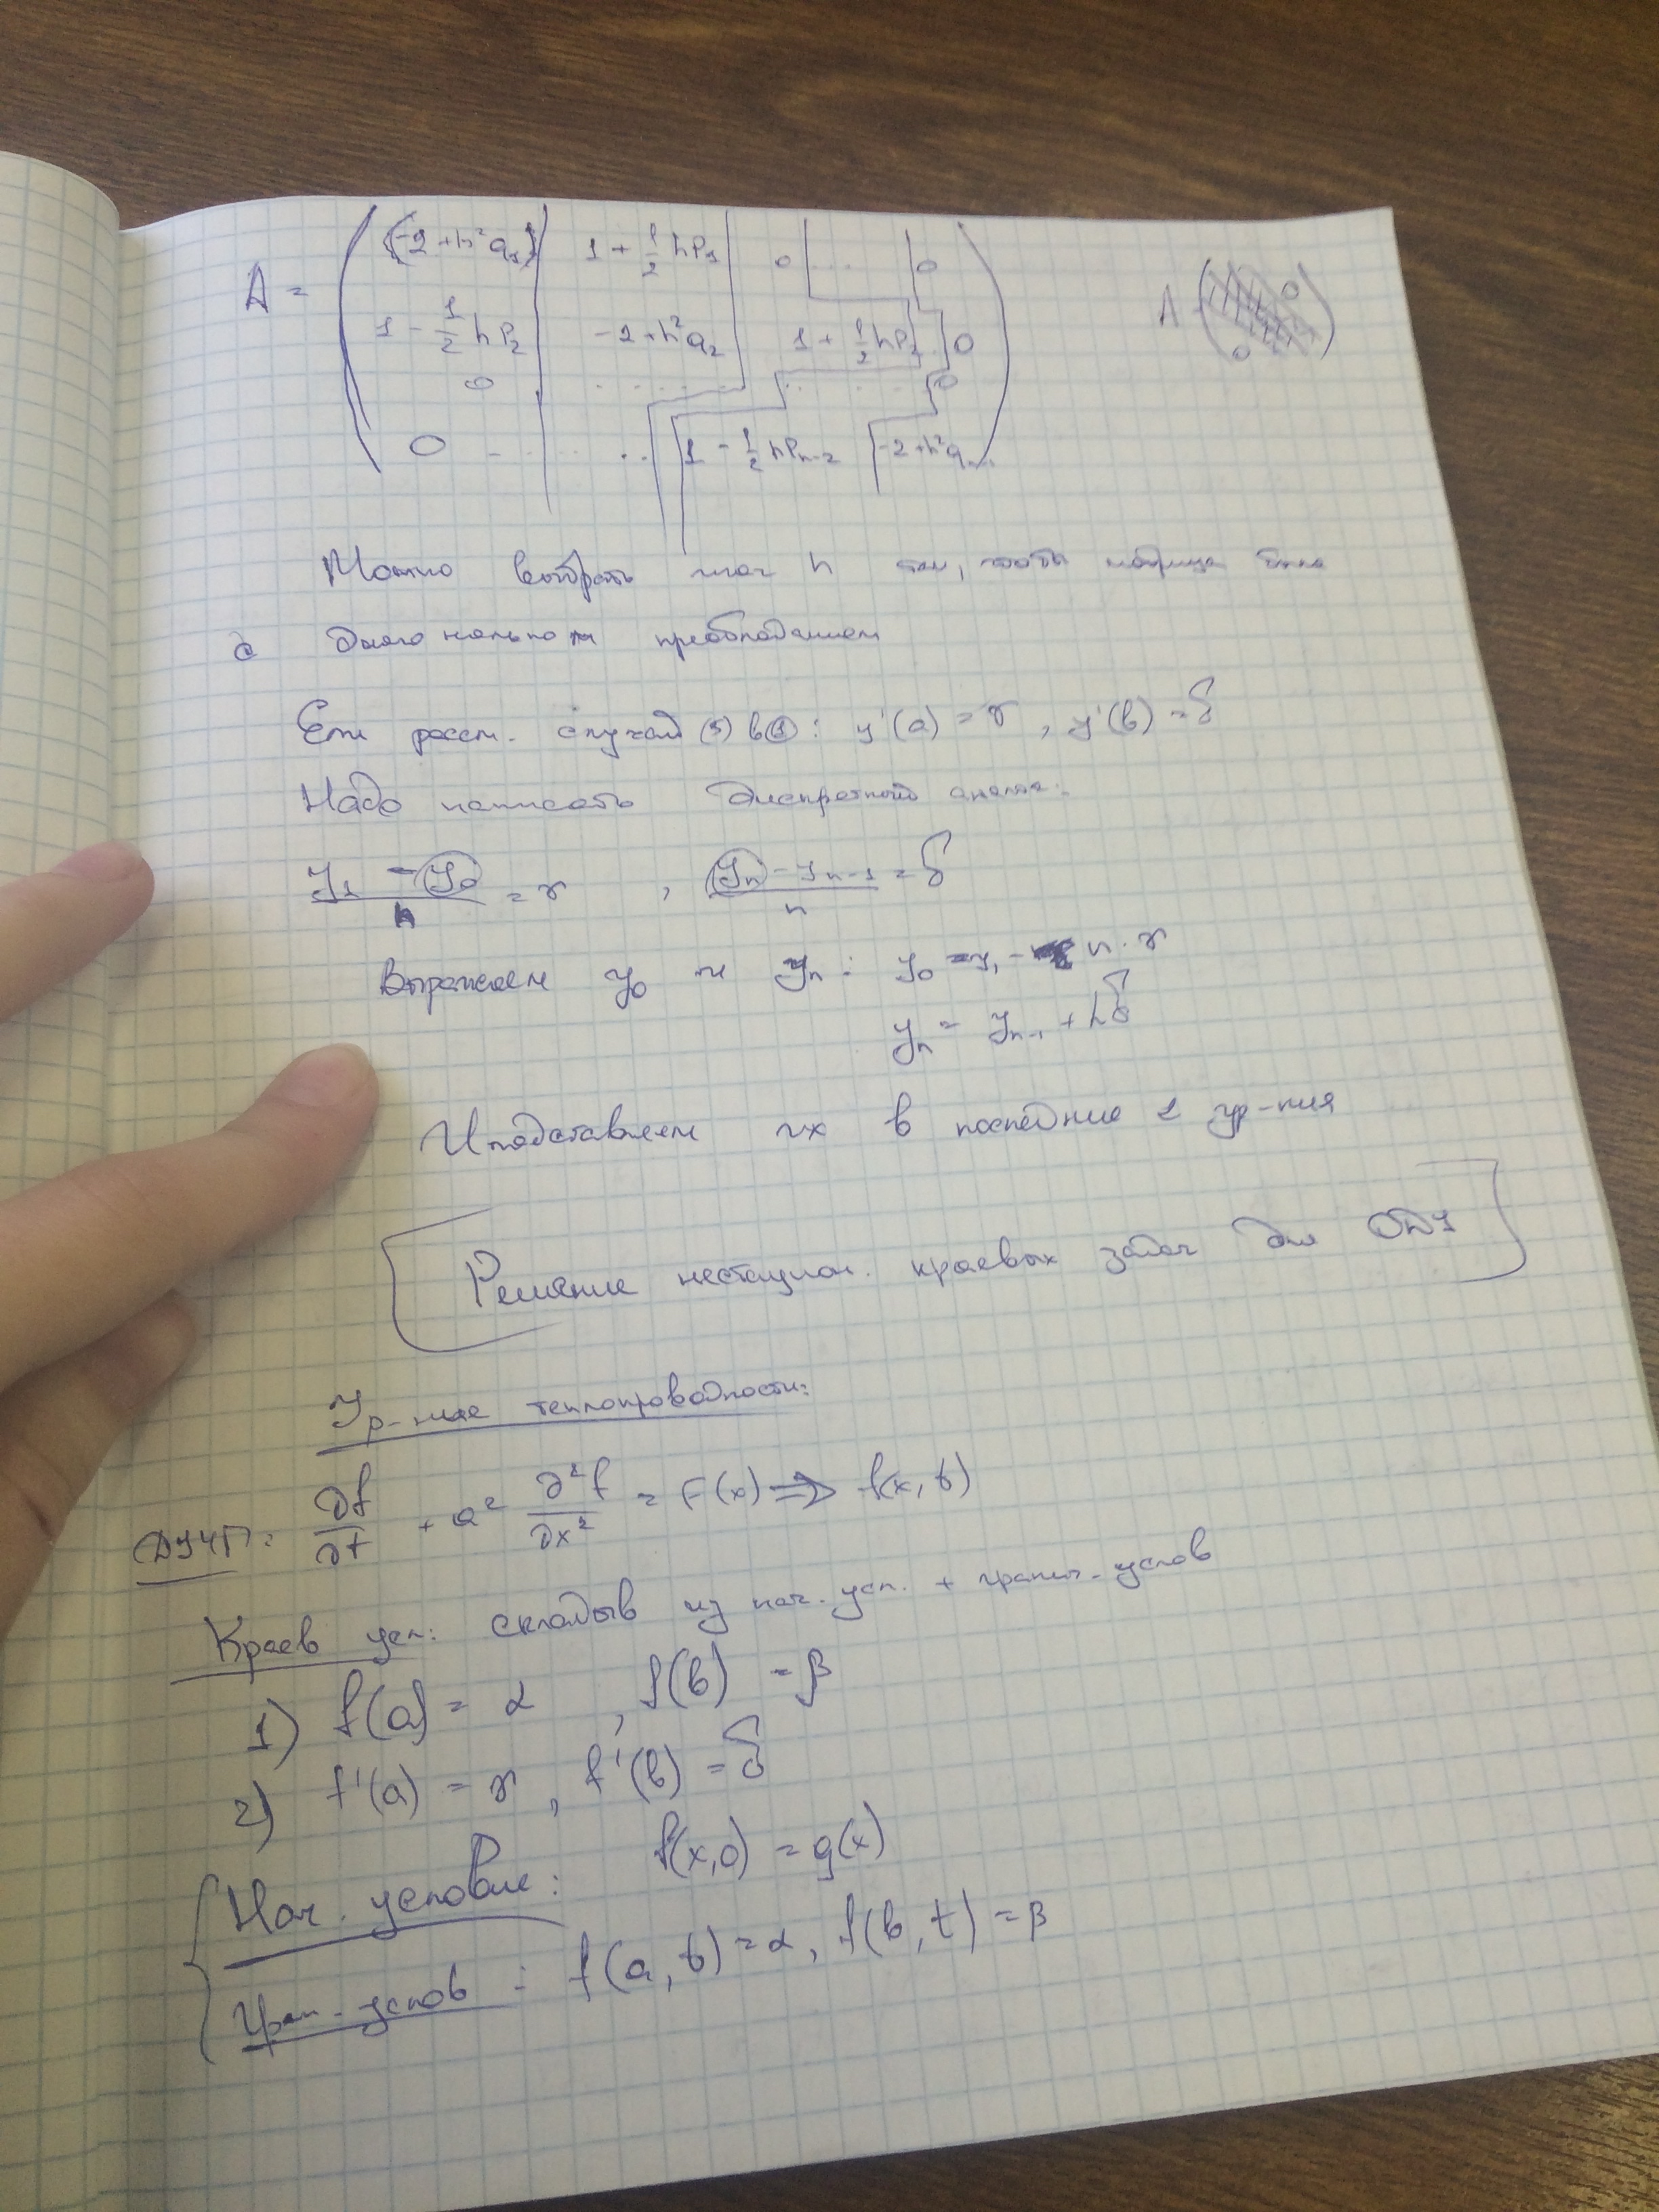 A = ( (-2 + h²q₁) 1 + 1/2 hp₁ 0 ... 0 )
1 - 1/2 hp₂ -2 + h²q₂ 1 + 1/2 hp₂ 0
0 ... 0
0 ... 1 - 1/2 hpₙ₋₂ -2 + h²q
A = ( 0 0 )
Можно выбрать шаг h так, чтобы матрица была
с диагональном преобладанием
Если рассм. случай (3) в (1): y'(a) = γ, y'(b) = δ
Надо написать дискретный аналог:
(y₁ - y₀)/h = γ , (yₙ - yₙ₋₁)/h = δ
Выражаем y₀ и yₙ: y₀ = y₁ - h·γ
yₙ = yₙ₋₁ + hδ
И подставляем их в последние 2 ур-ния
Решение нестацион. краевых задач для ОДУ
Ур-ние теплопроводности:
ДУЧП: ∂f/∂t + a² ∂²f/∂x² = F(x) ⇒ f(x, t)
Краев усл: складыв из нач. усл. + гранич. услов
1) f(a) = α , f(b) = β
2) f'(a) = γ , f'(b) = δ
Нач. условие: f(x,0) = g(x)
Гран. услов: f(a, t) = α, f(b, t) = β